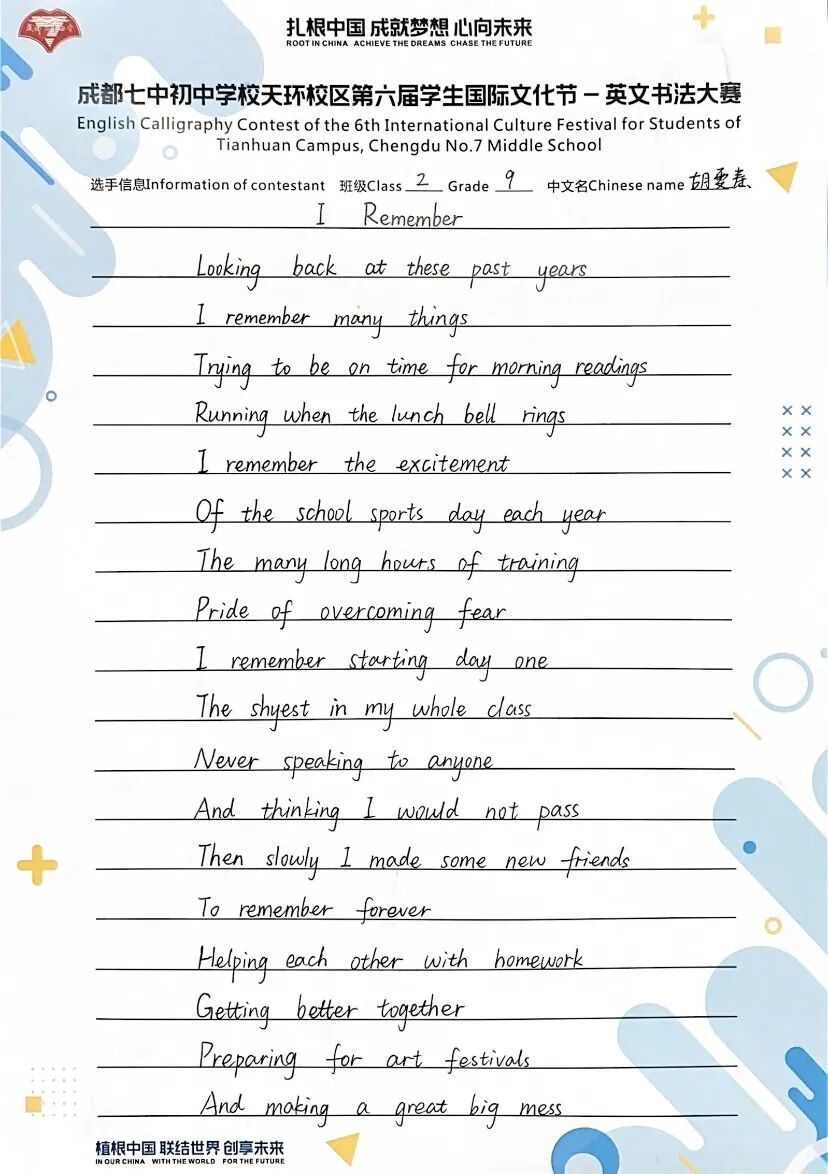 扎根中国 成就梦想 心向未来
ROOT IN CHINA ACHIEVE THE DREAMS CHASE THE FUTURE
成都七中初中学校天环校区第六届学生国际文化节 – 英文书法大赛
English Calligraphy Contest of the 6th International Culture Festival for Students of
Tianhuan Campus, Chengdu No.7 Middle School
选手信息Information of contestant 班级Class 2 Grade 9 中文名Chinese name 胡雯春
I Remember
Looking back at these past years
I remember many things
Trying to be on time for morning readings
Running when the lunch bell rings
I remember the excitement
Of the school sports day each year
The many long hours of training
Pride of overcoming fear
I remember starting day one
The shyest in my whole class
Never speaking to anyone
And thinking I would not pass
Then slowly I made some new friends
To remember forever
Helping each other with homework
Getting better together
Preparing for art festivals
And making a great big mess
植根中国 联结世界 创享未来
IN OUR CHINA WITH THE WORLD FOR THE FUTURE